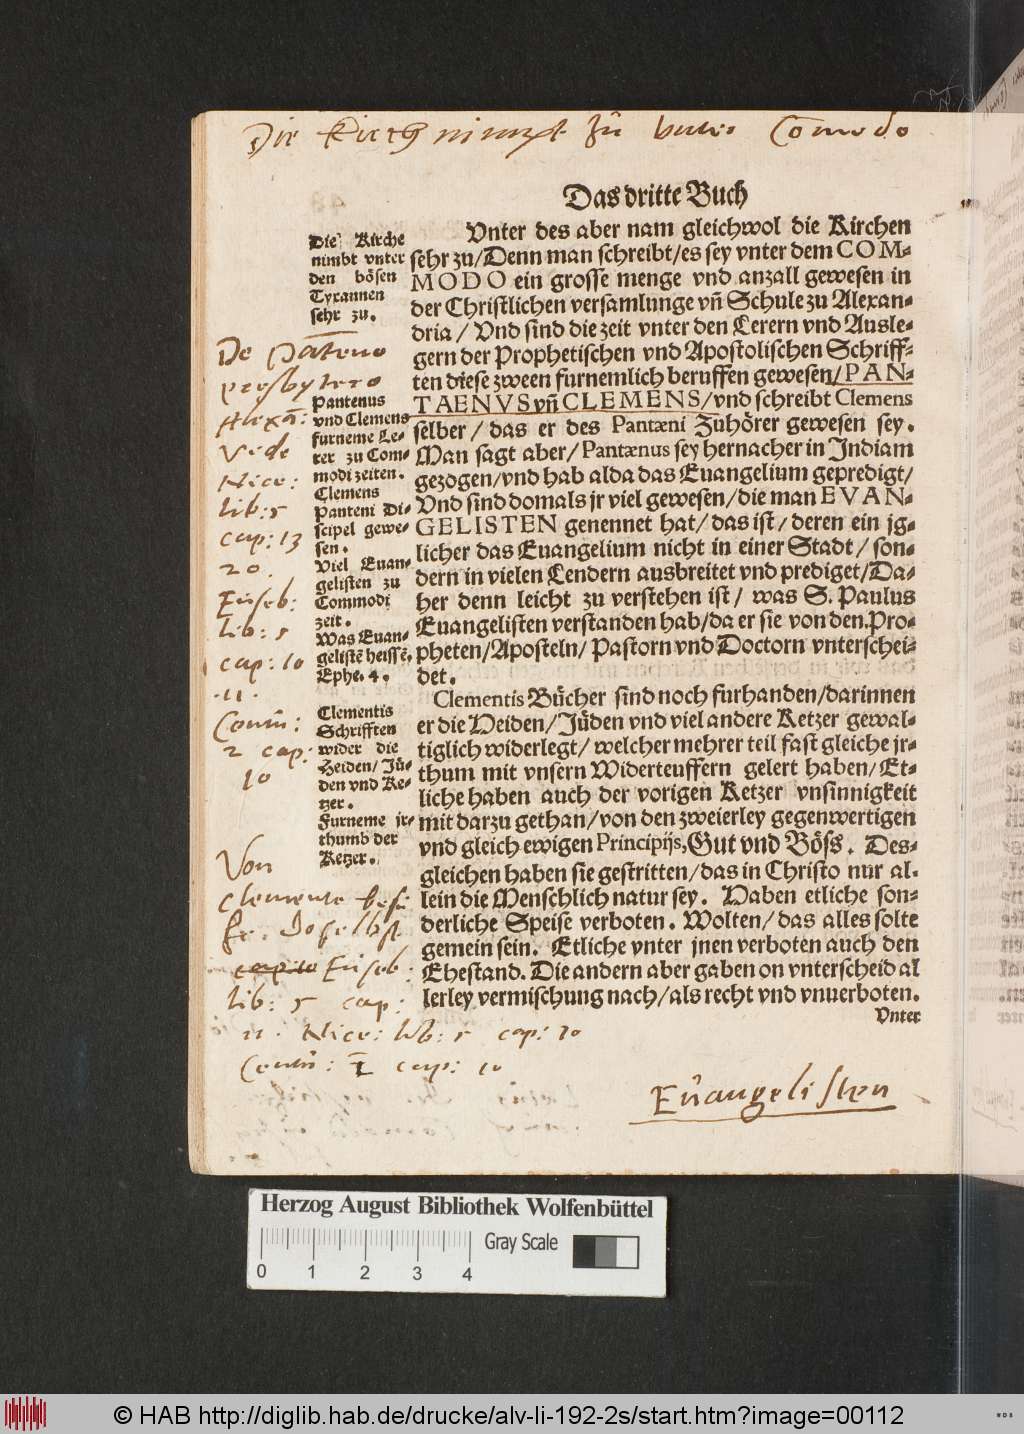 Die Kirch nimpt zu unter Comodo
Das dritte Buch
Die Kirche
nimbt vnter
den bösen
Tyrannen
sehr zu.
Vnter des aber nam gleichwol die Kirchen
sehr zu/Denn man schreibt/es sey vnter dem COM-
MODO ein grosse menge vnd anzall gewesen in
der Christlichen versamlunge vñ Schule zu Alexan-
dria/ Vnd sind die zeit vnter den Lerern vnd Ausle-
gern der Prophetischen vnd Apostolischen Schriff-
ten diese zween furnemlich beruffen gewesen/PAN-
TAENVS vñ CLEMENS/vnd schreibt Clemens
selber/ das er des Pantæni Zuhörer gewesen sey.
Man sagt aber/Pantænus sey hernacher in Indiam
gezogen/vnd hab alda das Euangelium gepredigt/
Vnd sind domals jr viel gewesen/die man EVAN-
GELISTEN genennet hat/das ist/deren ein jg-
licher das Euangelium nicht in einer Stadt/son-
dern in vielen Lendern ausbreitet vnd prediget/Da-
her denn leicht zu verstehen ist/ was S. Paulus
Euangelisten verstanden hab/da er sie von den.Pro-
pheten/Aposteln/Pastorn vnd Doctorn vnterschei-
det.
De Panteno
presbytero
Alexã:
Vide
Nice:
lib: 5
cap: 13
20.
Euseb:
lib: 5
cap: 10
.11.
Centu:
2 cap:
10
Pantenus
vnd Clemens
furneme Le-
rer zu Com-
modi zeiten.
Clemens
Panteni Di-
scipel gewe-
sen.
Viel Euan-
gelisten zu
Commodi
zeit.
Was Euan-
gelistẽ heissẽ.
Ephe. 4.
Clementis Bücher sind noch furhanden/darinnen
er die Heiden/Jüden vnd viel andere Ketzer gewal-
tiglich widerlegt/welcher mehrer teil fast gleiche jr-
thum mit vnsern Widerteuffern gelert haben/Et-
liche haben auch der vorigen Ketzer vnsinnigkeit
mit darzu gethan/von den zweierley gegenwertigen
vnd gleich ewigen Principijs,Gut vnd Böss. Des-
gleichen haben sie gestritten/das in Christo nur al-
lein die Menschlich natur sey. Haben etliche son-
derliche Speise verboten. Wolten/das alles solte
gemein sein. Etliche vnter jnen verboten auch den
Ehestand. Die andern aber gaben on vnterscheid al
lerley vermischung nach/als recht vnd vnuerboten.
Vnter
Clementis
Schrifften
wider die
Heiden/Jü-
den vnd Ke-
tzer.
Furneme jr-
thumb der
Ketzer.
Von
Clemente
Euseb:
lib: 5 cap:
11. Nice: lib: 5 cap: 10
Centu: cap: 10
Euangelisten
Herzog August Bibliothek Wolfenbüttel
Gray Scale
0 1 2 3 4
© HAB http://diglib.hab.de/drucke/alv-li-192-2s/start.htm?image=00112